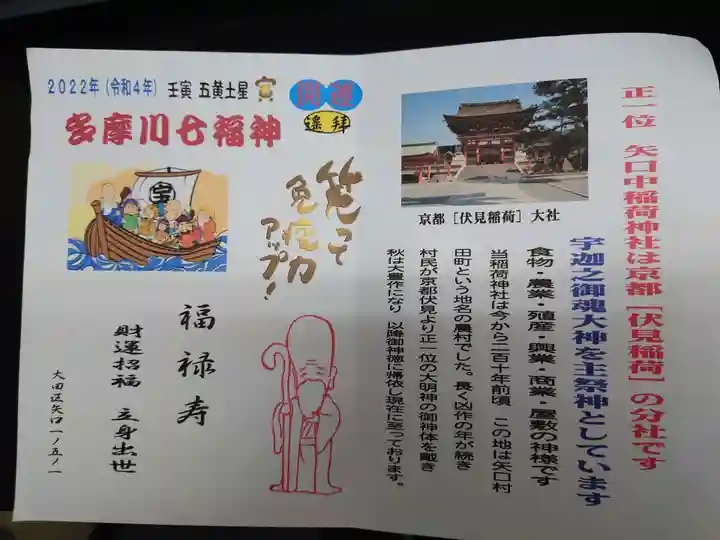 2022年(令和4年) 壬寅 五黄土星
開運
遙拝
多摩川七福神
宝
笑って
免疫力
アップ!
福禄寿
財運招福 立身出世
大田区矢口一ノ五ノ一
正一位 矢口中稲荷神社は京都[伏見稲荷]の分社です
宇迦之御魂大神を主祭神としています
食物・農業・殖産・興業・商業・屋敷の神様です
京都[伏見稲荷]大社
当稲荷神社は今から二百十年前頃 この地は矢口村
田町という地名の農村でした。長く凶作の年が続き
村民が京都伏見より正一位の大明神の御神体を戴き
秋は大豊作になり 以降御神徳に帰依し現在に至っております。